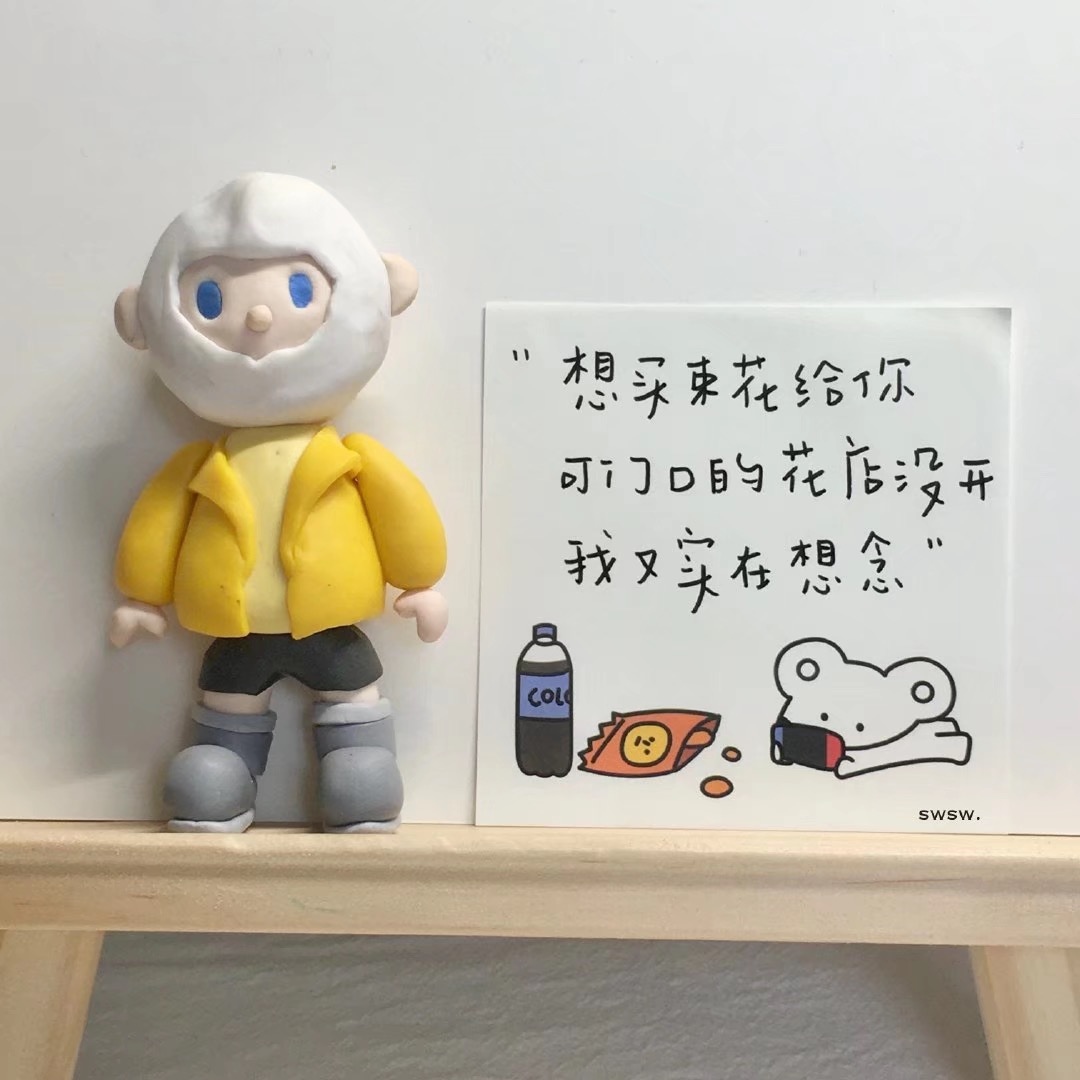 "想买束花给你
可门口的花店没开
我又实在想念"
COLO
swsw.